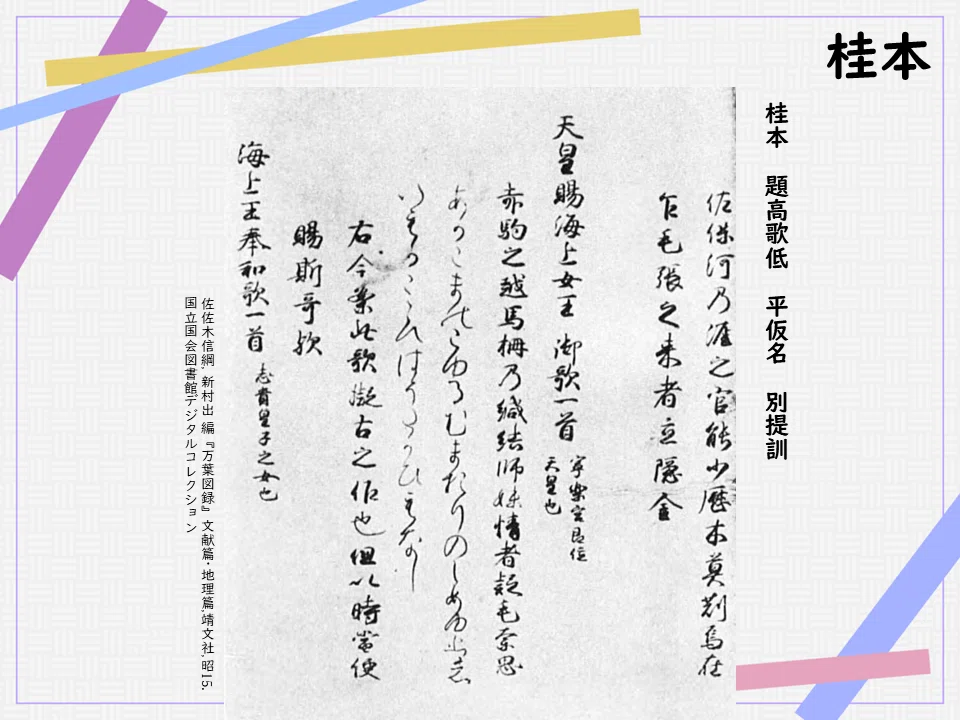 桂本
桂本 題高歌低 平仮名 別提訓
佐保河乃涯之官能少歴木莫刈烏在
乍毛張之来者立隠金
天皇賜海上女王御歌一首 寧楽宮即位天皇也
赤駒之越馬柵乃緘結師妹情者疑毛奈思
あかこまのこゆるむまをりのしめゆひし
いもかこゝろはうたかひもなし
右今案此歌擬古之作也但以時當便
賜斯哥歟
海上王奉和歌一首 志貴皇子之女也
佐佐木信綱, 新村出 編『万葉図録』文献篇・地理篇,靖文社,昭15.
国立国会図書館デジタルコレクション